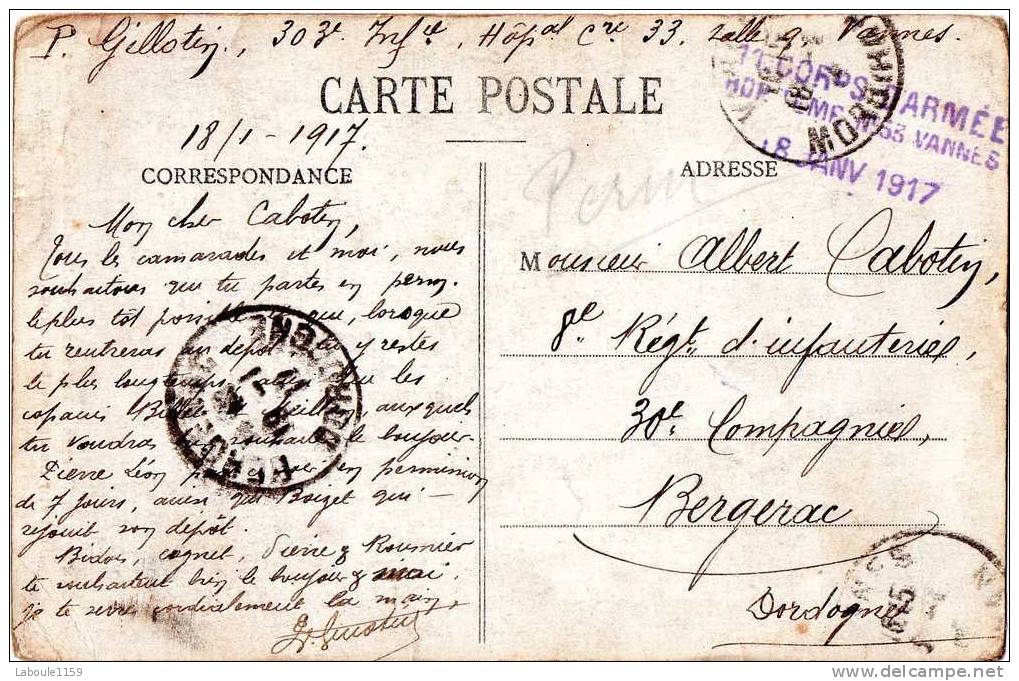 P. Gillotin, 303e Infie, Hôpal Cre 33, salle 9, Vannes.
CARTE POSTALE
11. CORPS D'ARMÉE
HOP. TEMP. No 33 VANNES
18 JANV 1917
MORBIHAN
18/1-1917.
CORRESPONDANCE
ADRESSE
Perm
Mon cher Cabotin,
Tous les camarades et moi, nous
souhaitons que tu partes en perm.
le plus tôt possible et que, lorsque
tu rentreras au dépôt tu y restes
le plus longtemps, ainsi que les
copains auxquels
tu voudras souhaiter le bonjour.
Pierre Léon en permission
de 7 jours, ainsi que Boizet qui
rejoint son dépôt.
Bidois, Cognet, Pierre & Rousnier
te souhaitent bien le bonjour & moi
je te serre cordialement la main.
Monsieur Albert Cabotin,
8e Régt. d'infanterie,
30e Compagnie,
Bergerac
Dordogne
Laboule1159
www.delcampe.net